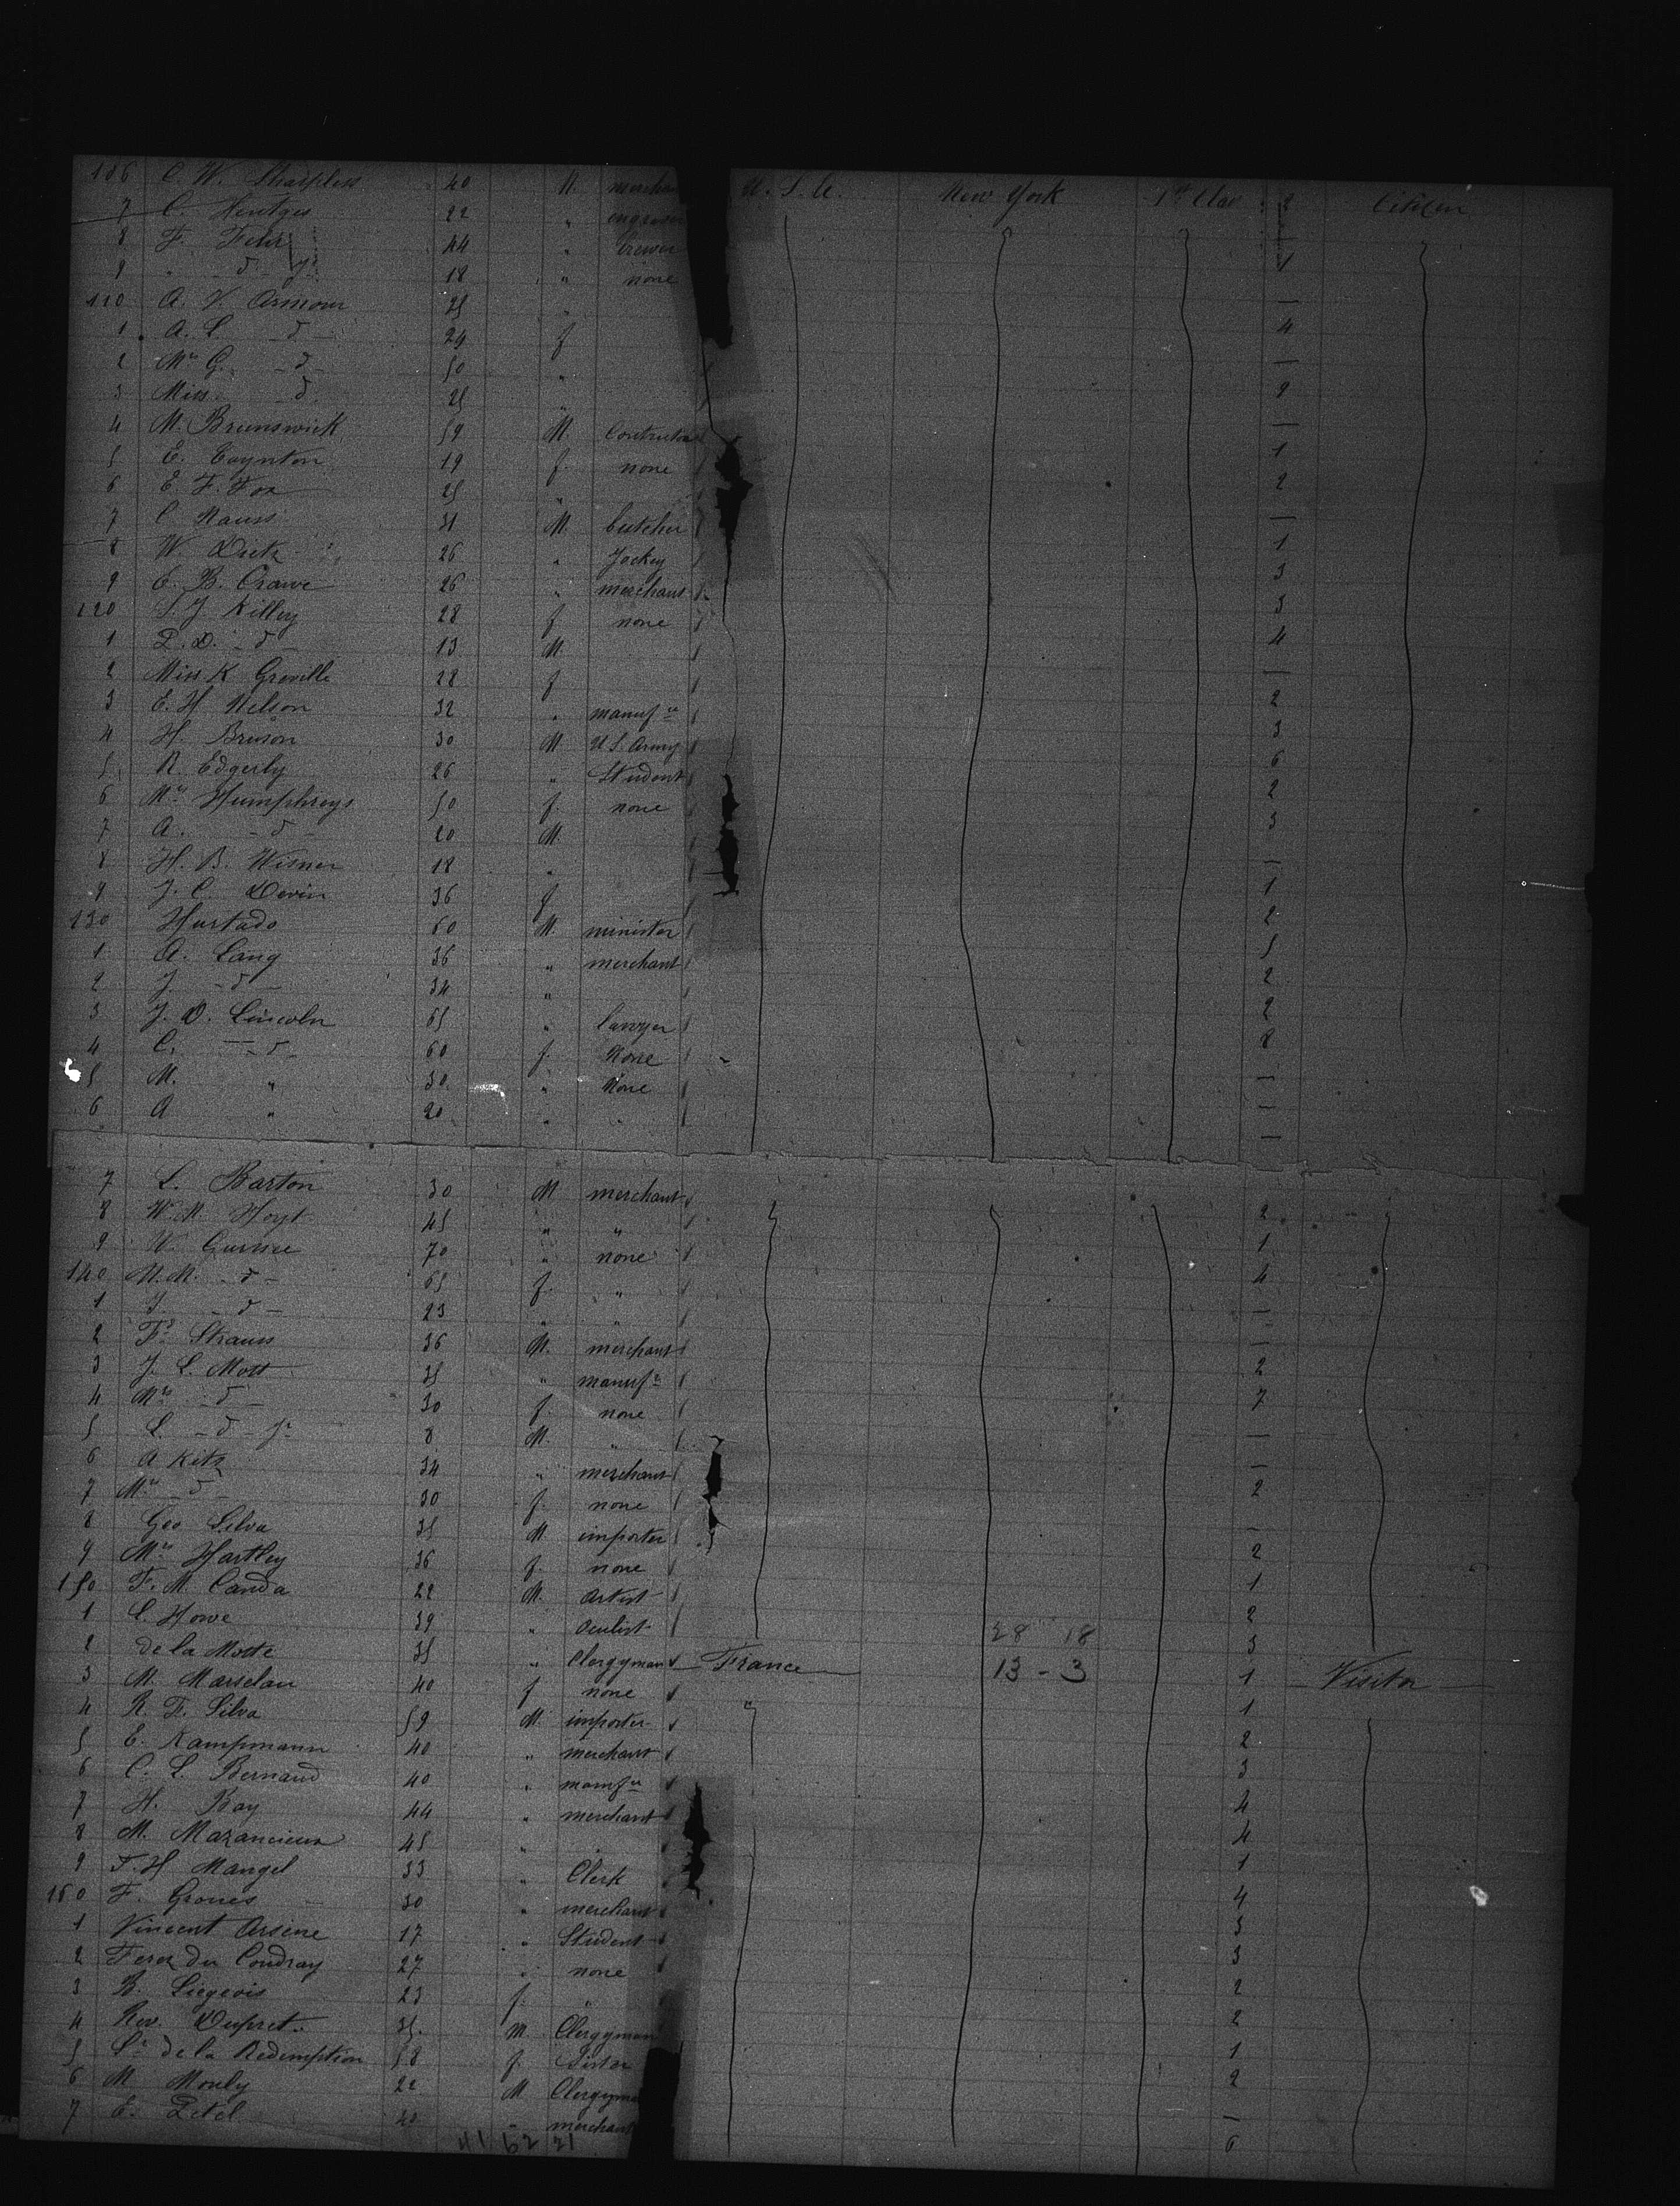 106 C. W. Sharpless 40 M. merchan U. S. A. New York 1st Clas 2 Citizen
7 C. Hentges 22 " engraver
8 F. Fehr 44 " brewer 1
9 " - d - Jr 18 " none
110 A. V. Armour 25 " —
1 A. L. - d - 29 f 4
2 Mrs G. - d - 50 " —
3 Miss - d - 25 " 9
4 M. Brunswick 59 M. Contractor —
5 E. Coynton 19 f. none 1
6 E. F. Fox 25 " 2
7 C. Nauss 31 M. butcher —
8 W. Dietz 26 " Jockey 1
9 E. B. Crawe 26 " merchant 3
120 S. J. Killey 28 f. none 3
1 L. D. - d - 13 M. 4
2 Miss K Greville 28 f —
3 E. H Nelson 32 " manufr 2
4 H. Bruson 30 M. U S. Army 3
5 R. Edgerly 26 " Student 6
6 Mrs Humphreys 50 f. none 2
7 A. - d - 20 M. 3
8 H. B. Wisner 18 " —
9 J. C. Devin 36 f 1
130 Hurtado 60 M. minister 2
1 A. Lang 36 " merchant 5
2 J. - d - 34 " 2
3 J. D. Lincoln 65 " lawyer 2
4 C. - d - 60 f. None 8
5 M. " 30 " None —
6 A " 20 " " —
—
7 L. Barton 30 M merchant
8 W. M. Hoyt 45 " " 2
9 W. 70 " none 1
140 M. M. - d - 65 f. " 4
1 J. - d - 23 " " —
2 Fd Strauss 36 M. merchant —
3 J. L. Mott 35 " manufr 2
4 Mrs - d - 30 f. none 7
5 L. - d - Jr 8 M. " —
6 A Kitz 34 " merchant —
7 Mrs - d - 30 f. none 2
8 Geo Silva 35 M. importer —
9 Mrs Hartley 36 f. none 2
150 F. M. Canda 22 M. Artist 1
1 L. Howe 39 " Oculist 28 18 2
2 de la Motte 35 " Clergyman France 13 - 3 3
3 M. Marselau 40 f none " 1 Visitor
4 R. F. Silva 59 M. importer 1
5 E. Kampmann 40 " merchant 2
6 C. L. Bernard 40 " manufr 3
7 H. Bay 44 " merchant 4
8 M. Mazancieux 45 " " 4
9 T. H Mangel 33 " Clerk 1
160 F. Grones 30 " merchant 4
1 Vincent Arsene 17 " Student 3
2 Ferez du Coudray 27 " none 3
3 B. Liegeois 23 f. " 2
4 Rev. Dupret 35 M Clergyman 2
5 Sr de la Redemption 58 f. Sister 1
6 M Mouly 22 M Clergyman 2
7 E. Letel 40 " merchant —
41 62 21 6